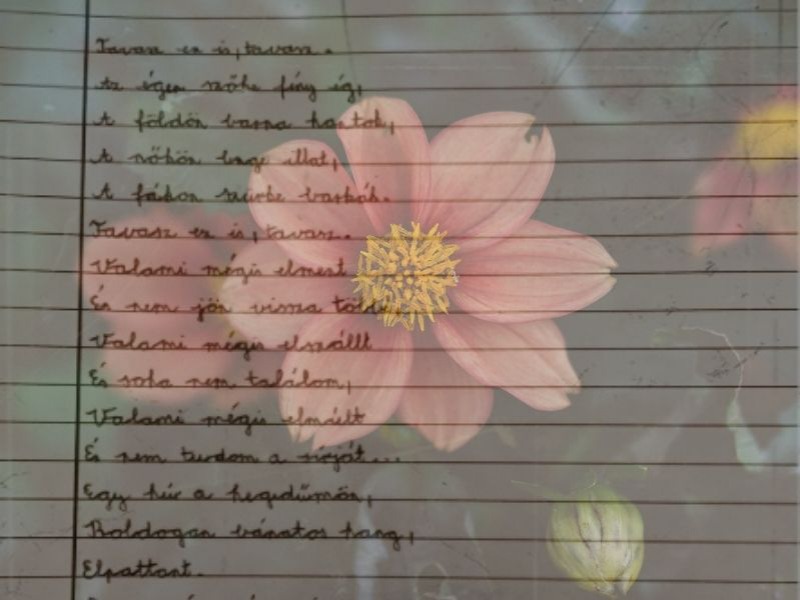 Tavasz ez is, tavasz.
Az égen szőke fény ég,
A földön barna hantok,
A nőkön lenge illat,
A fákon szürke barkák.
Tavasz ez is, tavasz.
Valami mégis elment
És nem jön vissza többé
Valami mégis elszállt
És soha nem találom,
Valami mégis elmúlt
És nem tudom a sírját...
Egy húr a hegedűmön,
Boldogan bánatos hang,
Elpattant.